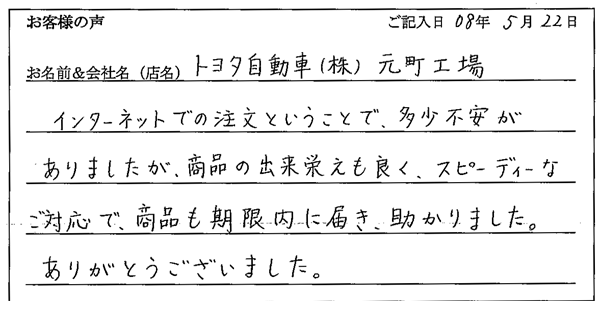 お客様の声 ご記入日 08年 5月 22日
お名前&会社名（店名） トヨタ自動車(株) 元町工場
インターネットでの注文ということで、多少不安が
ありましたが、商品の出来栄えも良く、スピーディーな
ご対応で、商品も期限内に届き、助かりました。
ありがとうございました。